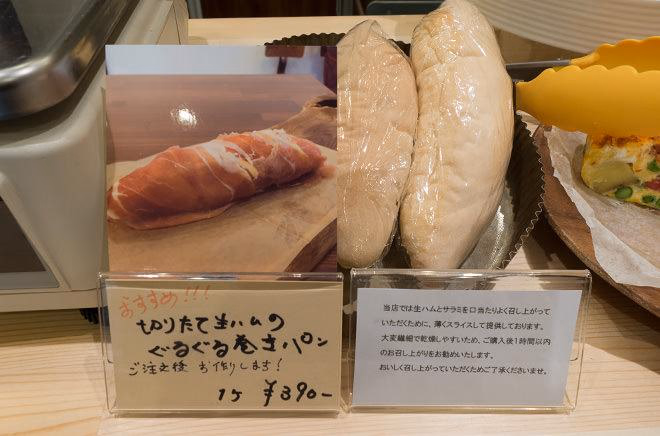 おすすめ!!!
切りたて生ハムの
ぐるぐる巻きパン
ご注文後 お作りします!
1ケ ¥390-
当店では生ハムとサラミを口当たりよく召し上がって
いただくために、薄くスライスして提供しております。
大変繊細で乾燥しやすいため、ご購入後1時間以内
のお召し上がりをお勧めいたします。
おいしく召し上がっていただくためご了承くださいませ。